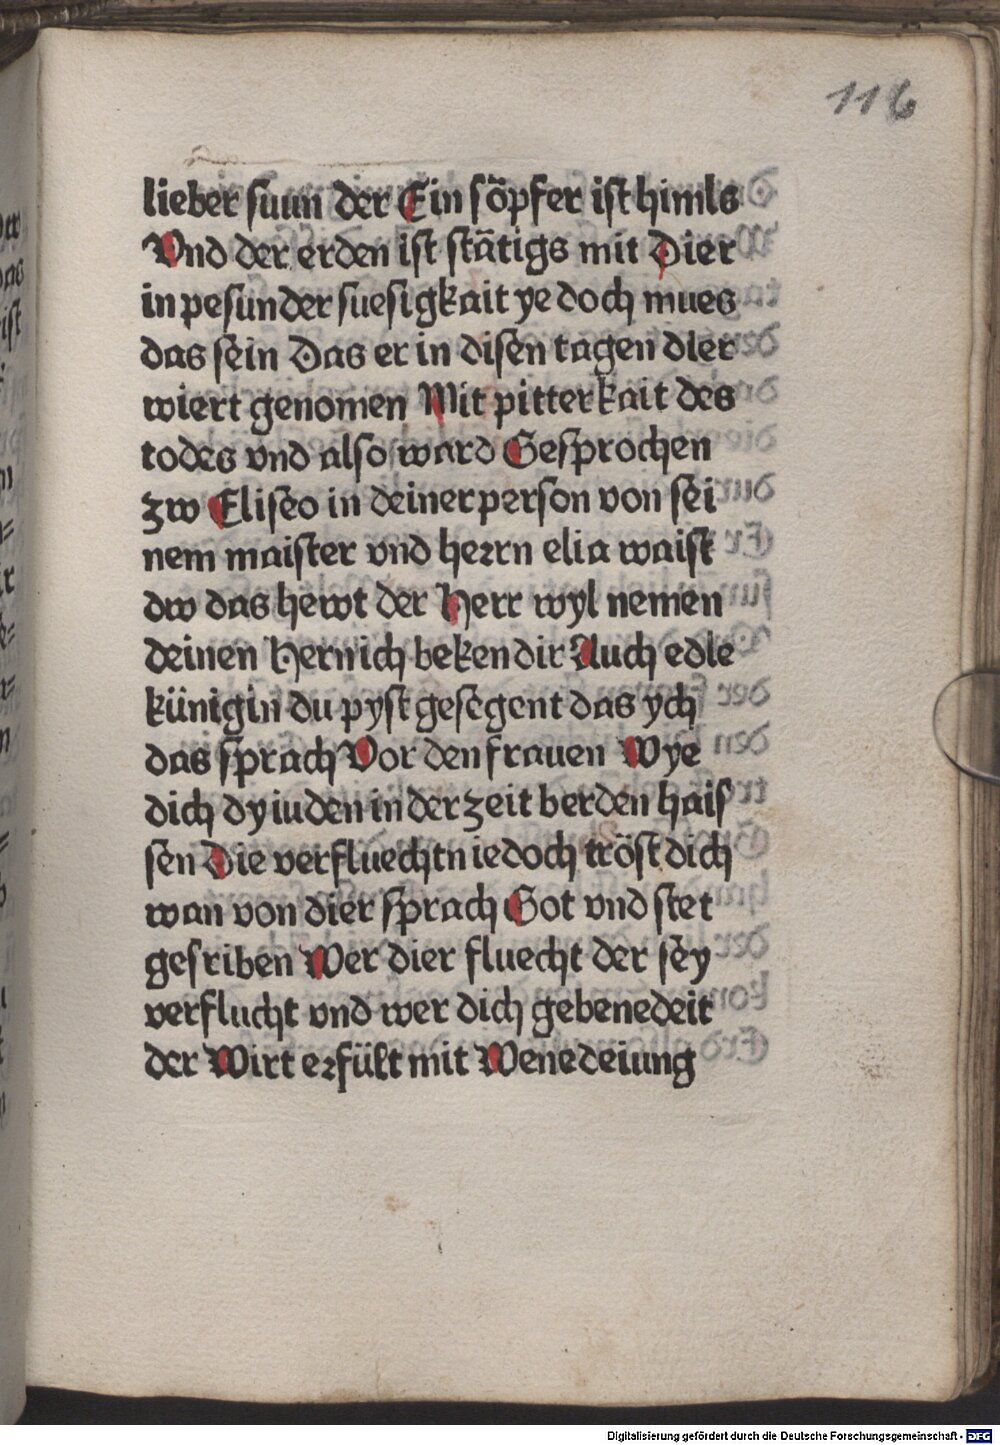 116
lieber suun der Ein söpfer ist himls
Vnd der erden ist stätigs mit Dier
in pesunder suesigkait ye doch mues
das sein Das er in disen tagen dier
wiert genomen Mit pitterkait des
todes vnd also ward Gesprochen
zw Eliseo in deiner person von sei
nem maister vnd herrn elia waist
dw das hewt der Herr wyl nemen
deinen Hern ich beken dir Auch edle
künigin du pyst gesegent das ych
das sprach Vor den frauen Wye
dich dy iuden in der zeit berden hais
sen Die verfluechtn iedoch tröst dich
wan von dier sprach Got vnd stet
gesriben Wer dier fluecht der sey
verflucht vnd wer dich gebenedeit
der Wirt erfült mit Wenedeiung
Digitalisierung gefördert durch die Deutsche Forschungsgemeinschaft - DFG